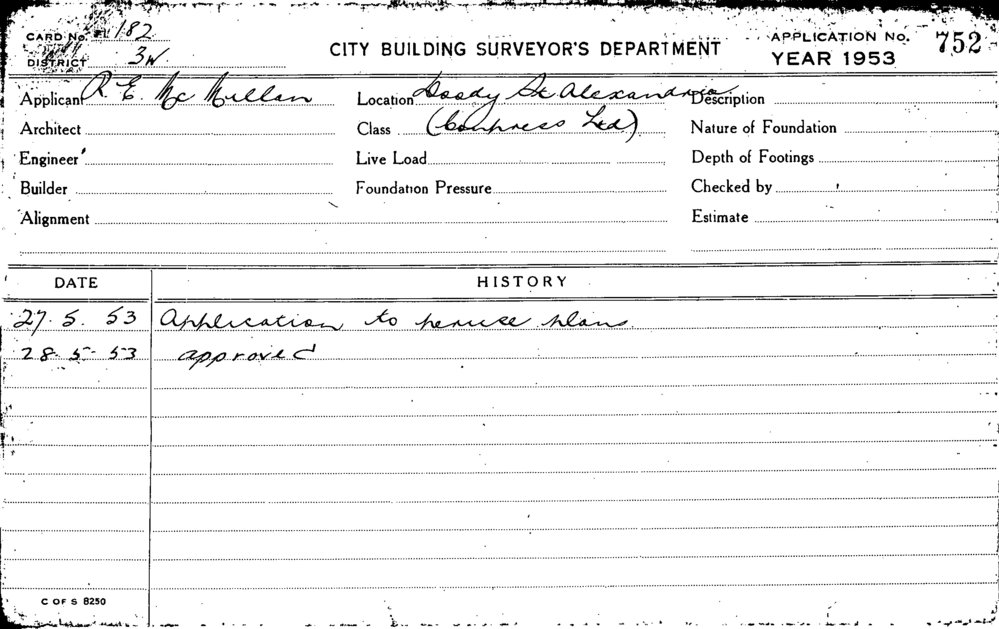 CARD No. 182
DISTRICT 3W.
CITY BUILDING SURVEYOR'S DEPARTMENT
APPLICATION No. 752
YEAR 1953
Applicant R. E. Mc Millan Location Doody St Alexandria Description
Architect Class (Conpress Ltd) Nature of Foundation
Engineer Live Load Depth of Footings
Builder Foundation Pressure Checked by
Alignment Estimate
DATE HISTORY
27. 5. 53 Application to peruse plans.
28. 5. 53 approved
C OF S 8250